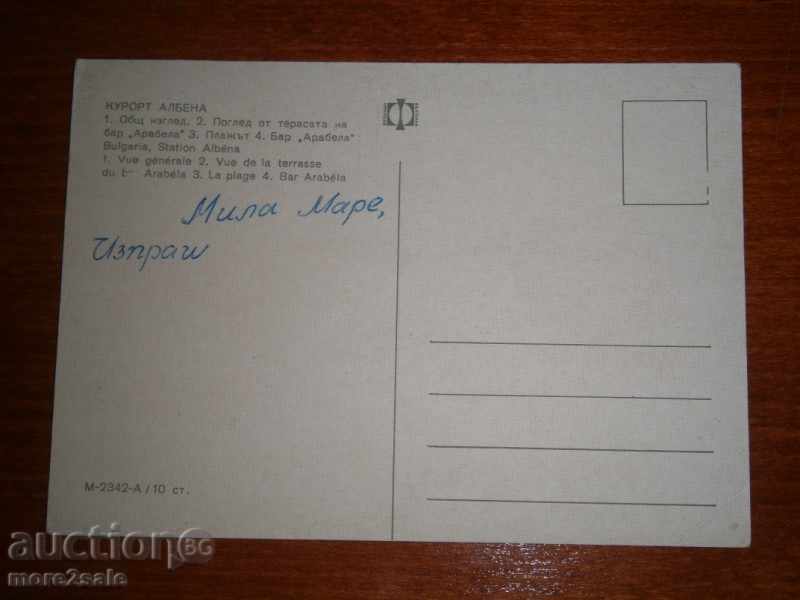 КУРОРТ АЛБЕНА
1. Общ изглед. 2. Поглед от терасата на
бар „Арабела" 3. Плажът 4. Бар „Арабела"
Bulgaria, Station Albéna
1. Vue générale 2. Vue de la terrasse
du Arabéla 3. La plage 4. Bar Arabéla
Мила Маре,
Изпращ
М-2342-А/10 ст.
auction.bg
more2sale